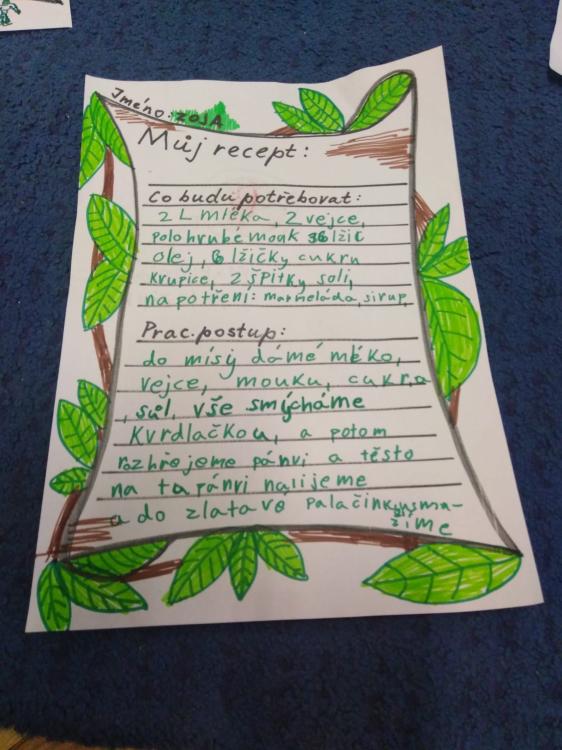 Jméno: ZOJA
Můj recept:
Co budu potřebovat:
2 L mléka, 2 vejce,
polohrubé mouk 36 lžic
olej, 6 lžičky cukru
krupice, 2 špitky soli,
na potření: marmeláda, sirup,
Prac. postup:
do mísy dáme méko,
vejce, mouku, cukra
, sůl, vše smýcháme
Kvrdlačkou, a potom
rozhřejeme pánvi a těsto
na ta pánvi nalijeme
a do zlatava palačinku sma-
žíme